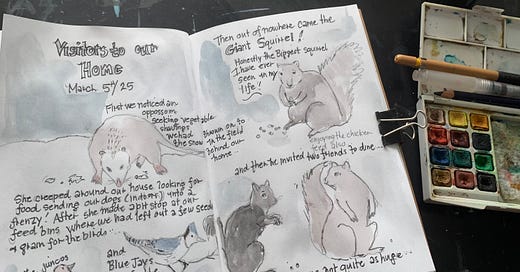 Visitors to our
Home
March 5th/25
First we noticed an
oppossom
seeking vegetable
shavings
we had
thrown on to
the snow
in the field
behind our
house
She creeped around our house looking for
food sending our dogs (indoors) into a
frenzy! After she made a bit stop at our
feed bins where we had left out a few seed
+ grain for the birds...
juncos
and
Blue Jays
Then out of nowhere came the
Giant Squirrel!
Honestly the Biggest squirrel
I have ever
seen in my
life!
enjoying the chicken
feed also
and then he invited two friends to dine...
not quite as huge...